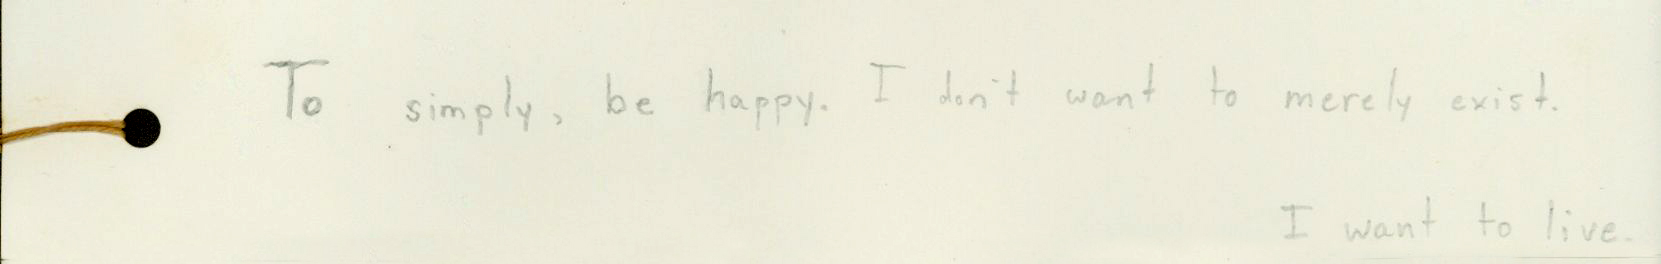 To simply, be happy. I don't want to merely exist.
I want to live.